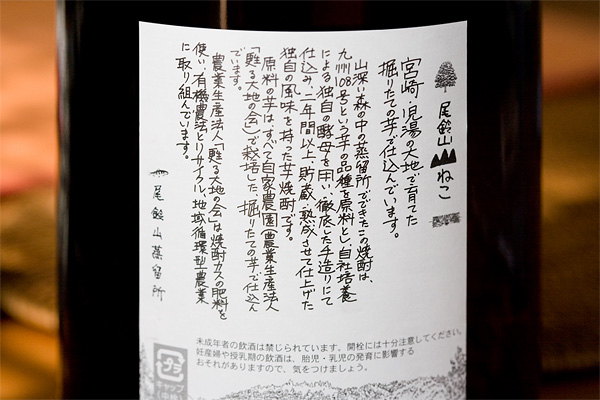 尾鈴山 ねこ
「宮崎・児湯の大地で育てた
掘りたての芋で仕込んでいます。
山深い森の中の蒸留所でできたこの焼酎は、
九州108号という芋の品種を原料とし、自社培養
による独自の酵母を用い、徹底した手造りにて
仕込み、二年間以上、貯蔵・熟成させて仕上げた
独自の風味を持った芋焼酎です。
原料の芋は、すべて自家農園(農業生産法人
「甦る大地の会」)で栽培した、掘りたての芋で仕込ん
でいます。
農業生産法人「甦る大地の会」は焼酎カスの肥料を
使い、有機農法とリサイクル、地域循環型農業
に取り組んでいます。
尾鈴山蒸留所
未成年者の飲酒は禁じられています。開栓には十分注意してください。
妊産婦や授乳期の飲酒は、胎児・乳児の発育に影響する
おそれがありますので、気をつけましょう。
プラ
キャップ